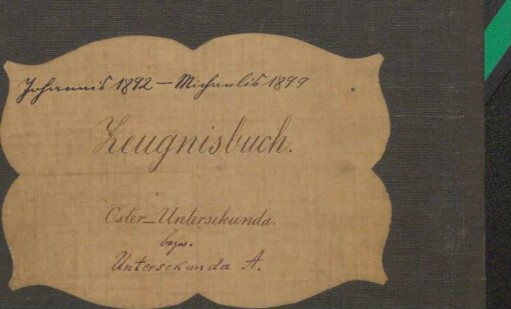 Johannis 1892 — Michaelis 1899
Zeugnisbuch.
Oster-Untersekunda.
bezw.
Untersekunda A.